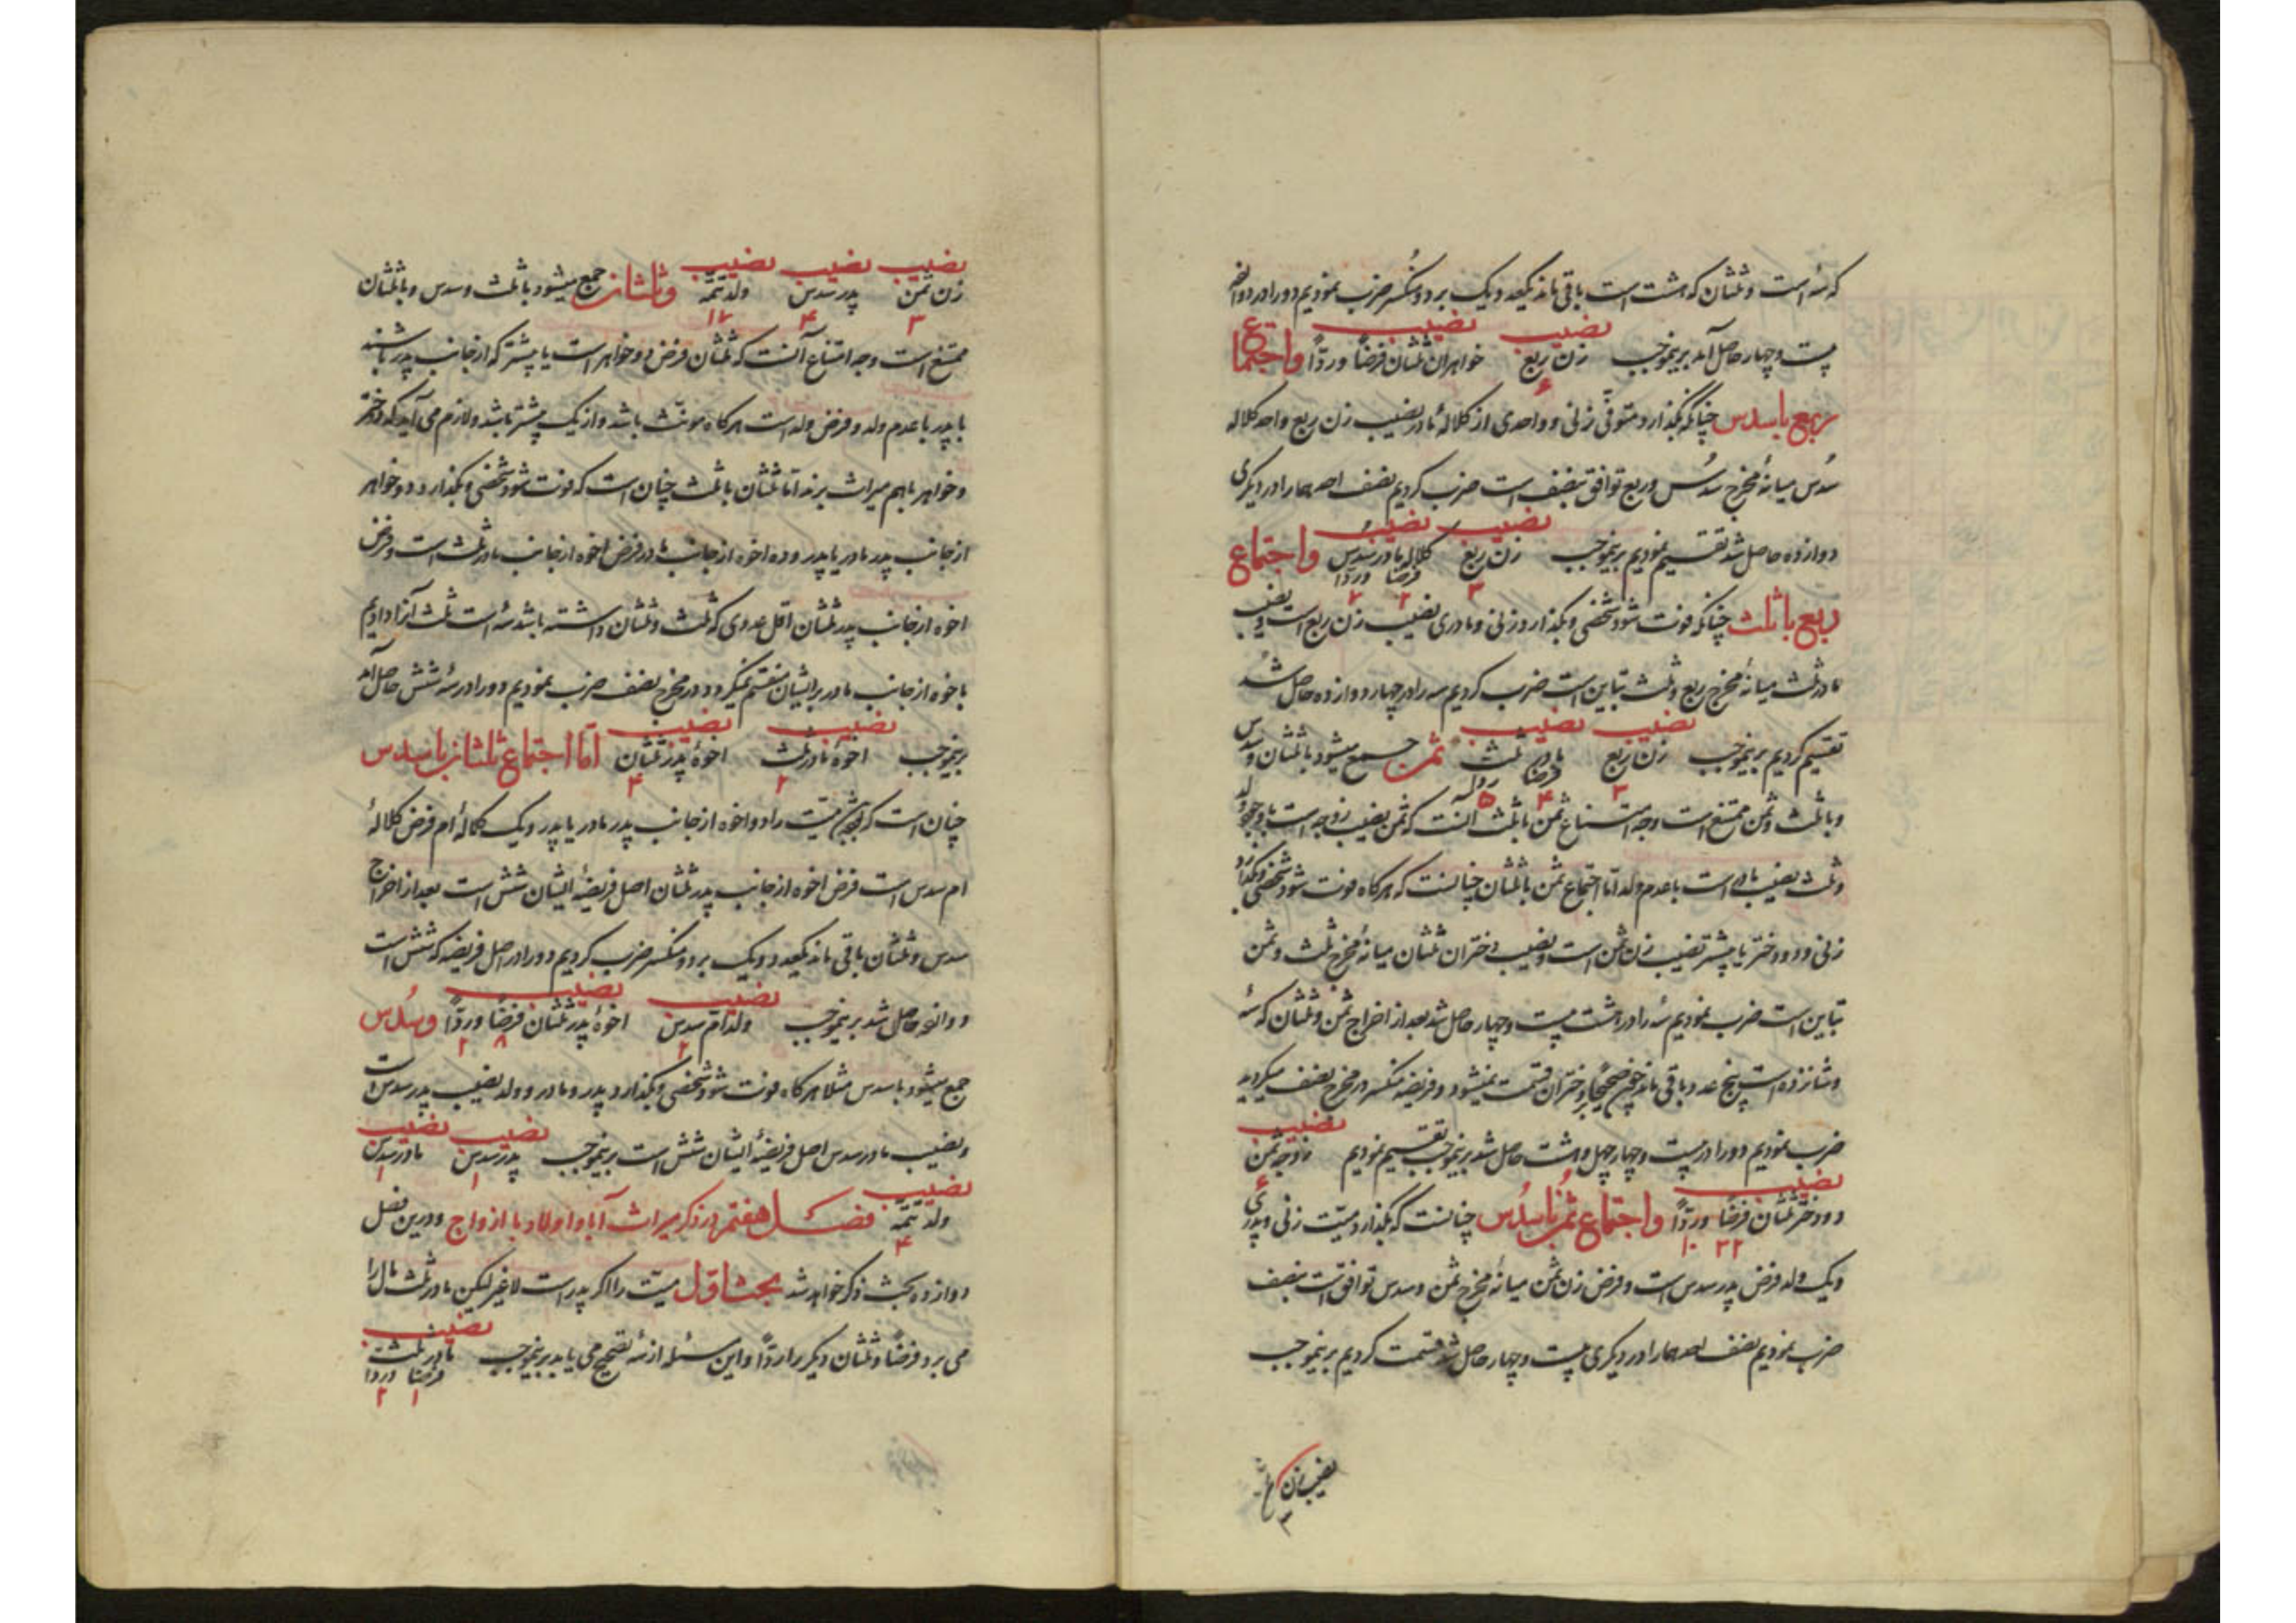 که سه است و ثلثان که هشت است باقی ماند یکعدد یک بر دو منکسر ضرب نمودیم دو را در دوازده
بیست و چهار حاصل آمد برینموجب نصیب زن ربع ۶ نصیب خواهران ثلثان فرضاً و ردّاً واجتماع
ربع با سدس چنانکه بگذارد متوفی زنی و واحدی از کلالهٔ مادر نصیب زن ربع واحد کلاله
سُدُس میانهٔ مخرج سُدُس و ربع توافق بنصف است ضرب کردیم نصف احدهما را در دیگری
دوازده حاصل شد تقسیم نمودیم برینموجب نصیب زن ربع ۳ نصیب کلاله مادر سدس فرضا وردا ۲ واجتماع
ربع با ثلث چنانکه فوت شود شخصی و بگذارد زنی و مادری نصیب زن ربع است و نصیب
مادر ثلث میانهٔ مخرج ربع و ثلث تباین است ضرب کردیم سه را در چهار دوازده حاصل شد
تقسیم کردیم برینموجب نصیب زن ربع ۳ نصیب مادر ثلث فرضا ۴ ردا ۵ ثمن جمع میشود با ثلثان و سدس
و با ثلث و ثمن ممتنع است وجه امتناع ثمن با ثلث آنست که ثمن نصیب زوجه است با وجود ولد
و ثلث نصیب مادر است با عدم ولد امّا اجتماع ثمن با ثلثان چنانست که هرکاه فوت شود شخصی و بگذارد
زنی و دو دختر یا بیشتر نصیب زن ثمن است و نصیب دختران ثلثان میانهٔ مخرج ثلث و ثمن
تباین است ضرب نمودیم سه را در هشت بیست و چهار حاصل شد بعد از اخراج ثمن و ثلثان که سه
و شانزده است پنج عدد باقی ماند دختران قسمت نمیشود و فریضه منکسر در مخرج نصف میکردید
ضرب نمودیم دو را در بیست و چهار چهل و هشت حاصل شد برینموجب تقسیم نمودیم نصیب زوجه ثمن ۶
نصیب دو دختر ثلثان فرضاً وردّاً ۳۲ ۱۰ واجتماع ثمن با سُدُس چنانست که بگذارد میّت زنی و پدری
و یک ولد فرض پدر سدس است و فرض زن ثمن میانهٔ مخرج ثمن و سدس توافق است بنصف
ضرب نمودیم نصف احدهما را در دیکری بیست و چهار حاصل شد قسمت کردیم برینموجب
نصیب زن
نصیب زن ثمن ۳ نصیب پدر سدس ۴ نصیب ولد تتمّه ۱۷ وثلثان جمع میشود با ثلث و سدس و با ثلثان
ممتنع است وجه امتناع آنست که ثلثان فرض دو خواهر است یا بیشتر که از جانب پدر باشند
یا پدر با عدم ولد و فرض ولد است هرکاه مونّث باشد و از یک بیشتر باشد و لازم می آید که دختر
و خواهر باهم میراث برند امّا ثلثان با ثلث چنان است که فوت شود شخصی و بگذارد دو خواهر
از جانب پدر مادر یا پدر و ده اخوه از جانب مادر فرض اخوه از جانب مادر ثلث است و فرض
اخوه از جانب پدر ثلثان اقل عددی که ثلث و ثلثان داشته باشد سه است ثلث آنرا دادیم
باخوه از جانب مادر بر ایشان منقسم نمیکردد در مخرج نصف ضرب نمودیم دو را در سه شش حاصل آمد
برینموجب نصیب اخوهٔ مادر ثلث ۲ نصیب اخوهٔ پدر ثلثان ۴ امّا اجتماع ثلثان با سدس
چنان است که میّت را دو اخوه از جانب پدر مادر یا پدر و یک کلالهٔ ام فرض کلالهٔ
ام سدس است فرض اخوه از جانب پدر ثلثان اصل فریضهٔ ایشان شش است بعد از اخراج
سدس و ثلثان باقی ماند یکعدد و یک بر دو منکسر ضرب کردیم دو را در اصل فریضه که شش است
دوازده حاصل شد برینموجب نصیب ولد ام سدس ۲ نصیب اخوهٔ پدر ثلثان فرضاً وردّاً ۸ ۲ وسُدُس
جمع میشود با سدس مثلا هرکاه فوت شود شخصی و بگذارد پدر و مادر و ولد نصیب پدر سدس است
و نصیب مادر سدس اصل فریضهٔ ایشان شش است برینموجب نصیب پدر سدس ۱ نصیب مادر سدس ۱
نصیب ولد تتمّه ۴ فصل هفتم در ذکر میراث آبا و اولاد با ازواج و درین فصل
دوازده بحث ذکر خواهد شد بحث اوّل میّت را اکر پدر است لاغیر لیکن مادر ثلث مال را
می برد فرضاً و ثلثان دیکر را ردّاً و این مسئله از سه تصحیح می یابد برینموجب نصیب مادر ثلث فرضا وردا ۱ ۲